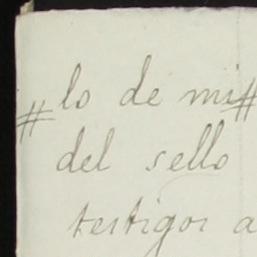 # lo de mi#
del sello
testigos a